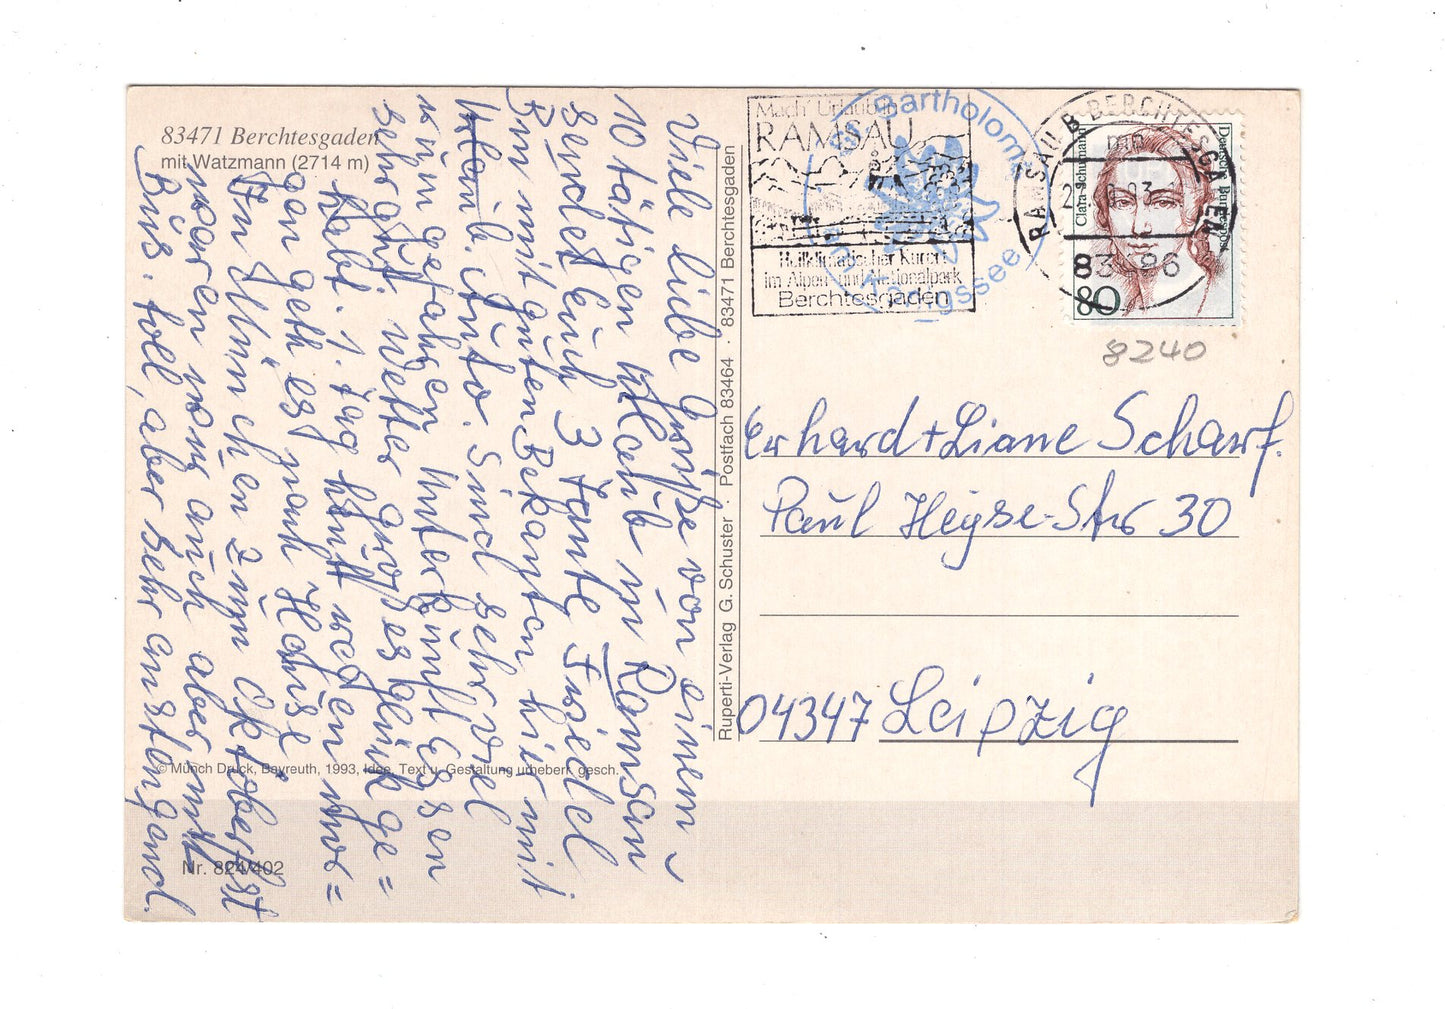 83471 Berchtesgaden
mit Watzmann (2714 m)
Viele liebe Grüße von einem
10 tätigen Urlaub in Ramsau
sendet Euch 3 Tante Friedel
Bin mit guten Bekanten hier mit
Urlaub. Auto. Sind sehr viel
rum gefahren Unterkunft Essen
sehr gut Wetter großes Glück ge=
habt. 1. Tag heut wegen mor=
gen geht es nach Hause
In München zum Oktoberfest
waren wir auch aber nur
Bus. toll, aber sehr anstengend.
© Münch Druck, Bayreuth, 1993, Idee, Text u. Gestaltung urheberr. gesch.
Nr. 824/402
Ruperti-Verlag G. Schuster · Postfach 83464 · 83471 Berchtesgaden
Mach' Urlaub in
RAMSAU
Heilklimatischer Kurort
im Alpen- und Nationalpark
Berchtesgaden
St. Bartholomä
Königssee
RAMSAU B BERCHTESGADEN
83486
Clara Schumann
Deutsche Bundespost
80
8240
Erhard + Liane Scharf.
Paul Heyse-Str 30
04347 Leipzig